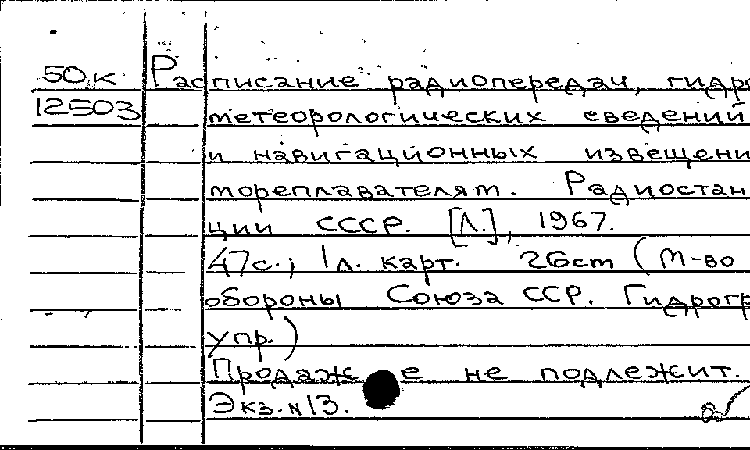 50.к Расписание радиопередач, гидро
12503 метеорологических сведений
и навигационных извещени
мореплавателям. Радиостан
ции СССР. [Л.], 1967.
47с.; 1л. карт. 26см (М-во
обороны Союза ССР. Гидрогр
упр.)
Продаже не подлежит.
Экз. N13.